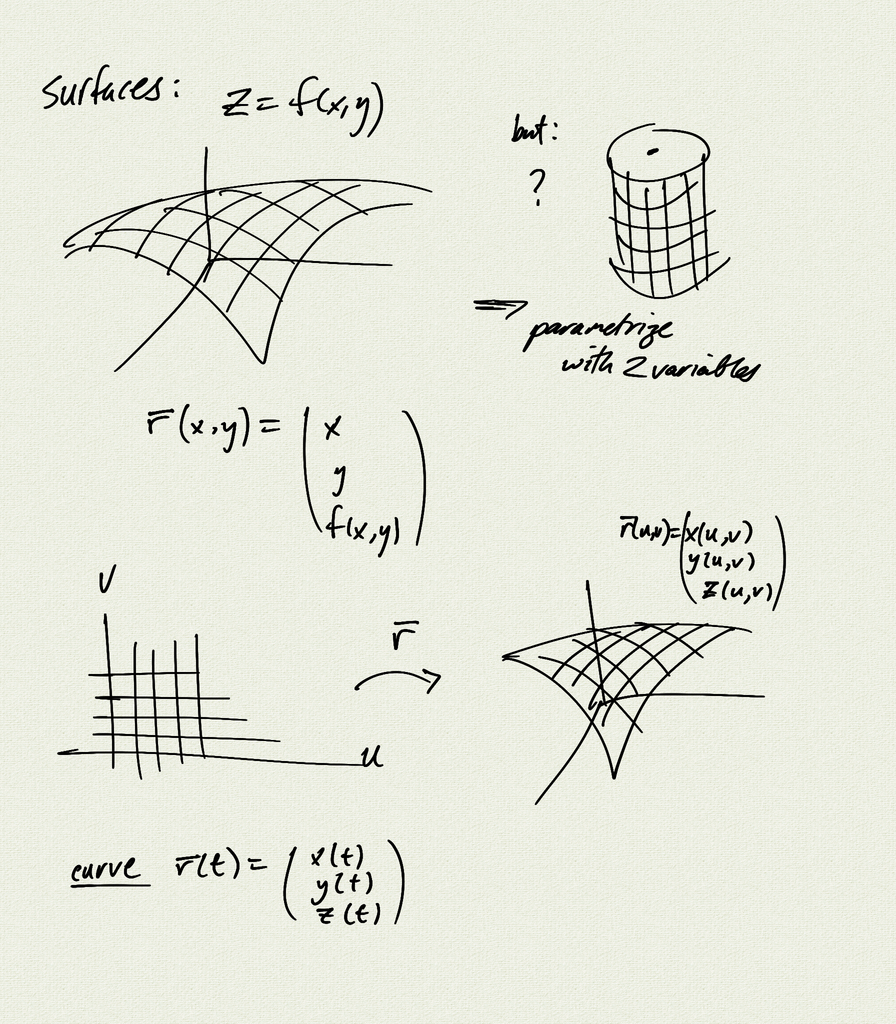 surfaces: z = f(x,y)
but:
?
⇒ parametrize
with 2 variables
r̅(x,y) = ( x
y
f(x,y) )
r̅(u,v) = ( x(u,v)
y(u,v)
z(u,v) )
v
r̅
u
curve r̅(t) = ( x(t)
y(t)
z(t) )